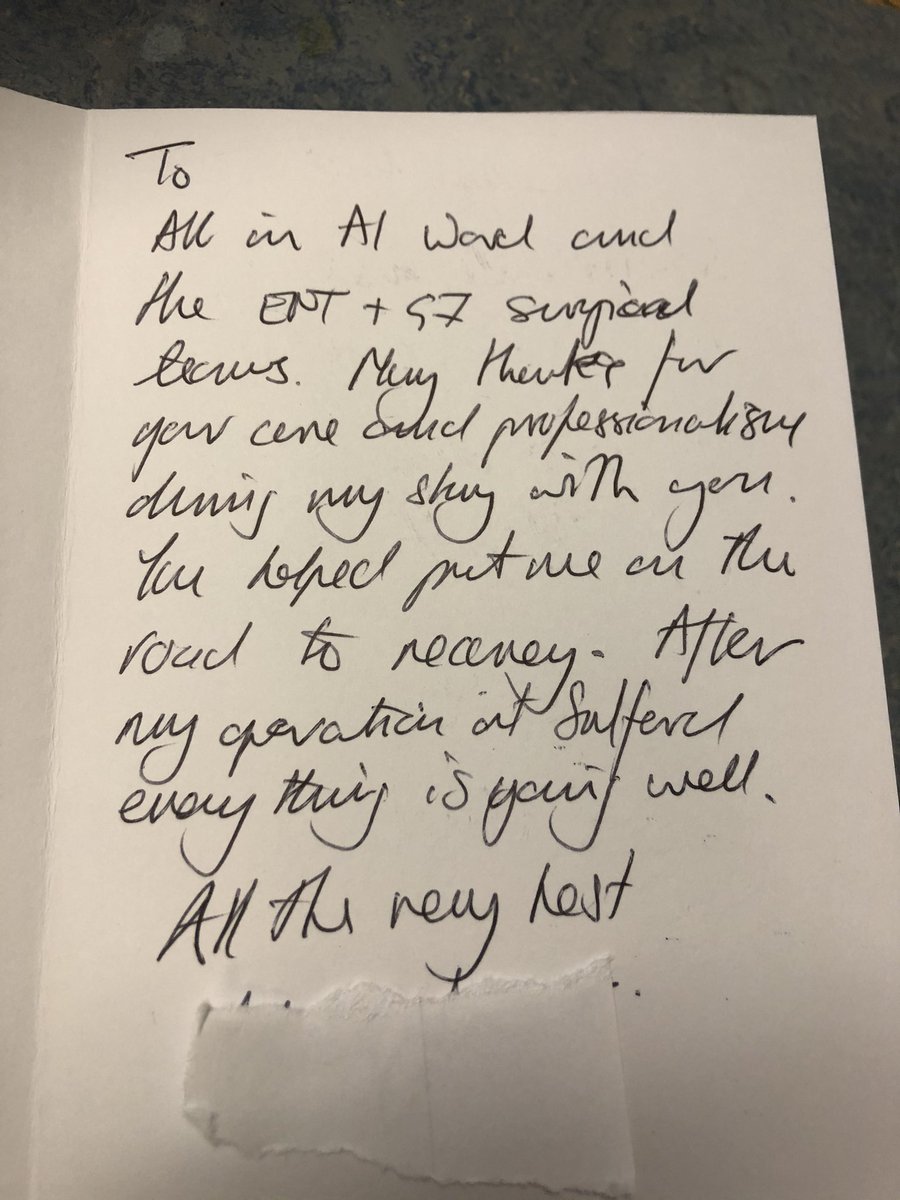 To
All in A1 Ward and
the ENT + S7 surgical
teams. Many thanks for
your care and professionalism
during my stay with you.
You helped put me on the
road to recovery. After
my operation at Salford
everything is going well.
All the very best